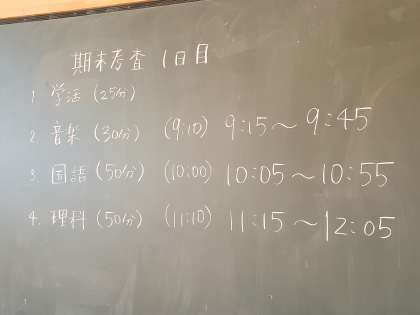 期末考査 1日目
1. 学活 (25分)
2. 音楽 (30分) (9:10) 9:15〜9:45
3. 国語 (50分) (10:00) 10:05〜10:55
4. 理科 (50分) (11:10) 11:15〜12:05